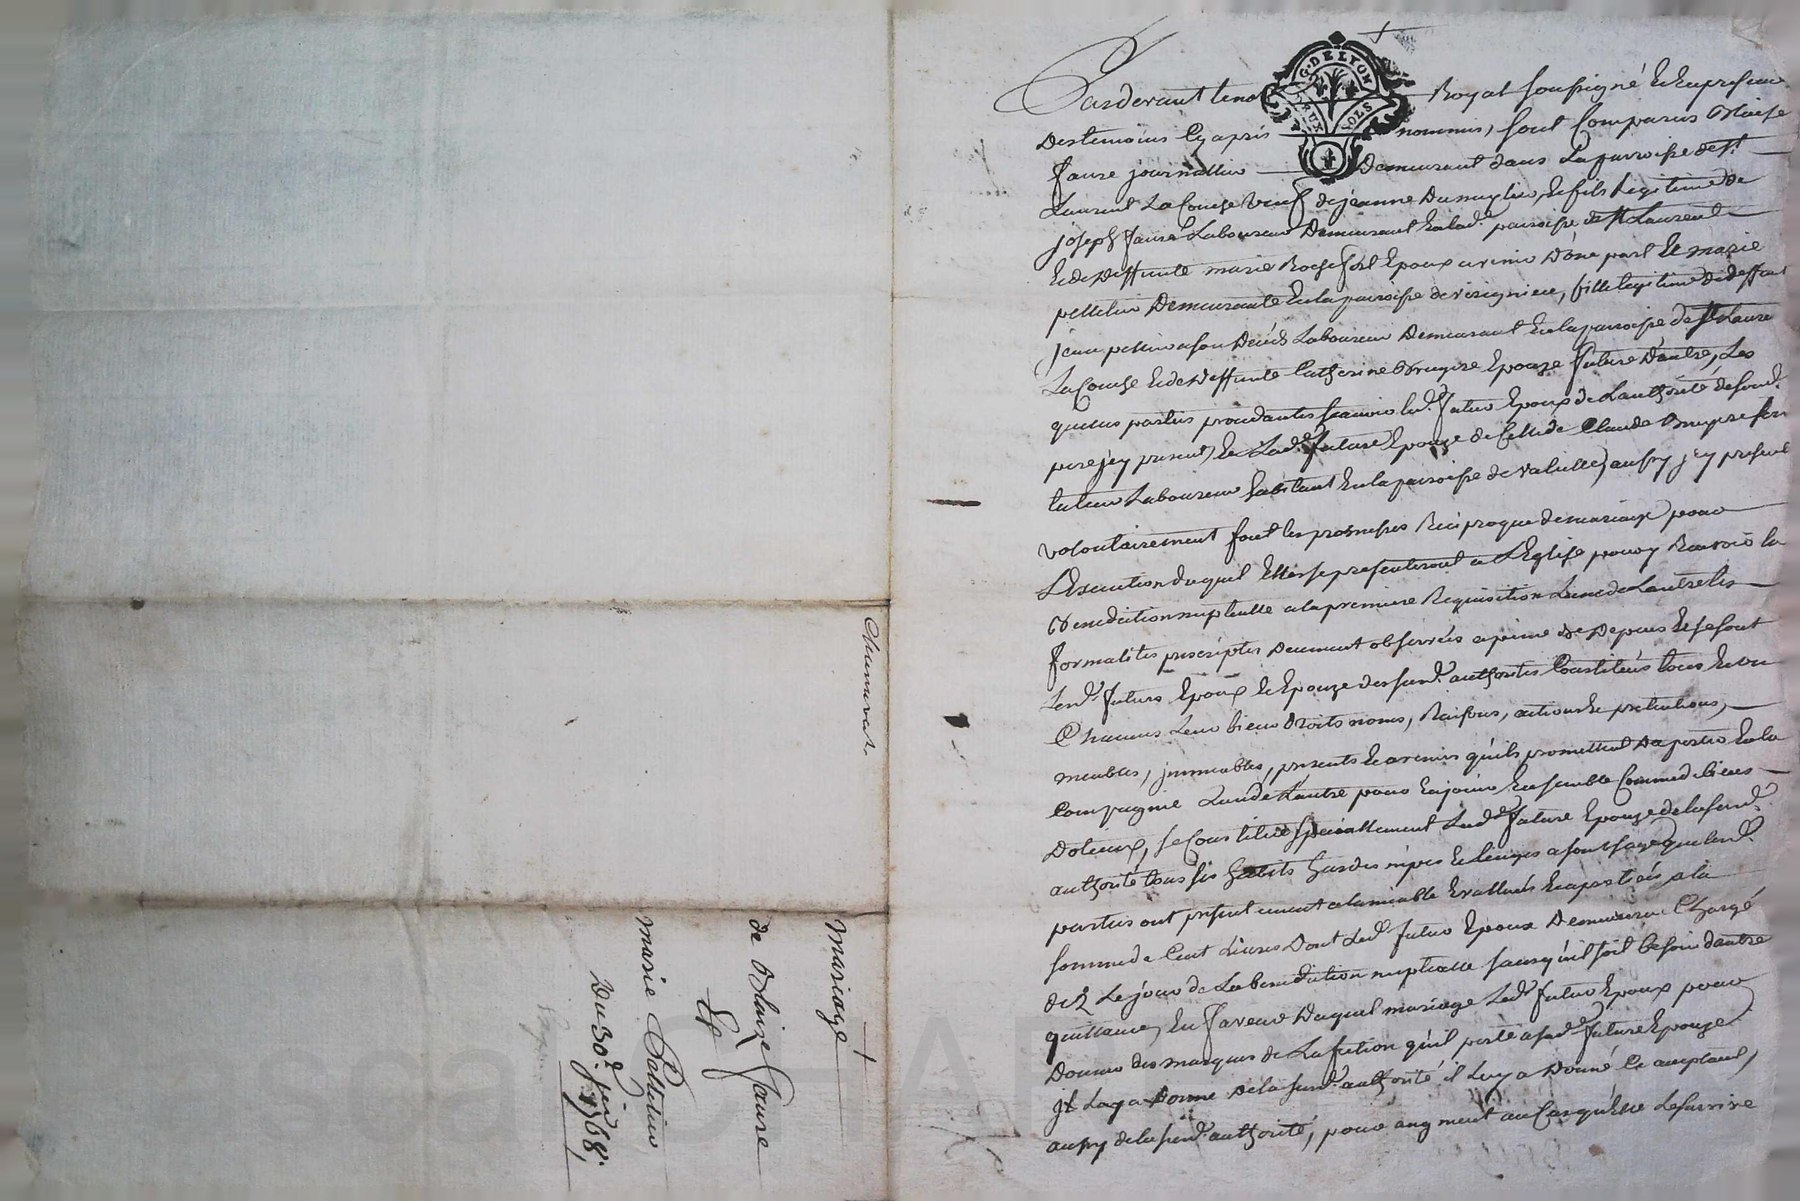 Chamuret
Mariage
de Blaize Faure
Et
marie Pelletier
Du 30e. juin
1768.
G. DE LYON
DEUX SOLS
Pardevant le no Royal soussigné Et En presence
Des temoins Cy aprés nommés, sont Comparus Blaise
faure journallier Demeurant dans La parroisse de st.
Laurent La Conche veuf de jeanne Dumaglieu, Et fils Legitime de
joseph faure Laboureur Demeurant En lad. paroisse de st Laurent
Et de Deffunte marie Rochefort Epoux avenir D'une part Et marie
pelletier Demeurante En la paroisse de , fille legitime de deffunt
jean pelletier a son Décés Laboureur Demeurant En la paroisse de st Laurent
La Conche Et de Deffunte Catherine Bruyere Epouze future D'autre, Les
quelles parties procedantes scavoir led. futur Epoux de L'authorité de sond.
pere jcy present, Et Lad. future Epouze de Celle de Claude Bruyere son
tuteur Laboureur habitant En la paroisse de valeille, aussy jcy present
volontairement font les promesses Reciproque de mariage pour
L'Execution duquel Elles se presenteront a L'Eglise pour y Recevoir la
Benediction nuptialle a la premiere Requisition L'une de L'autre les
formalités prescriptes Deument observées a peine de Depens Et se font
Lesd. futurs Epoux Et Epouze des susd. authorités Constitués tous Et un
Chacuns Leur biens Droits noms, Raisons, actions Et pretentions,
meubles, jmmeubles, presents Et avenir qu'ils promettent D'aporter En la
Compagnie L'un de L'autre pour En jouir Ensemble Comme de biens
Dotaux, se Constitue specialement Lad. future Epouze de la susd.
authorité tous ses habits hardes nipes Et linges a son usage que lesd.
parties ont presentement a lamiable Evallués Et apretiés a la
somme de Cent Livres Dont Led. futur Epoux Demeurera Chargé
dez Le jour de La benediction nuptialle sans qu'il soit besoin dautre
quittance, En faveur Duquel mariage Led. futur Epoux pour
Donner des marques de L'affection qu'il porte a sad. future Epouze
jl Luy a Donné De la susd. authorité il Luy a Donné Et acceptant,
aussy de la susd. authorité, pour augment au Cas qu'Elle Le survive